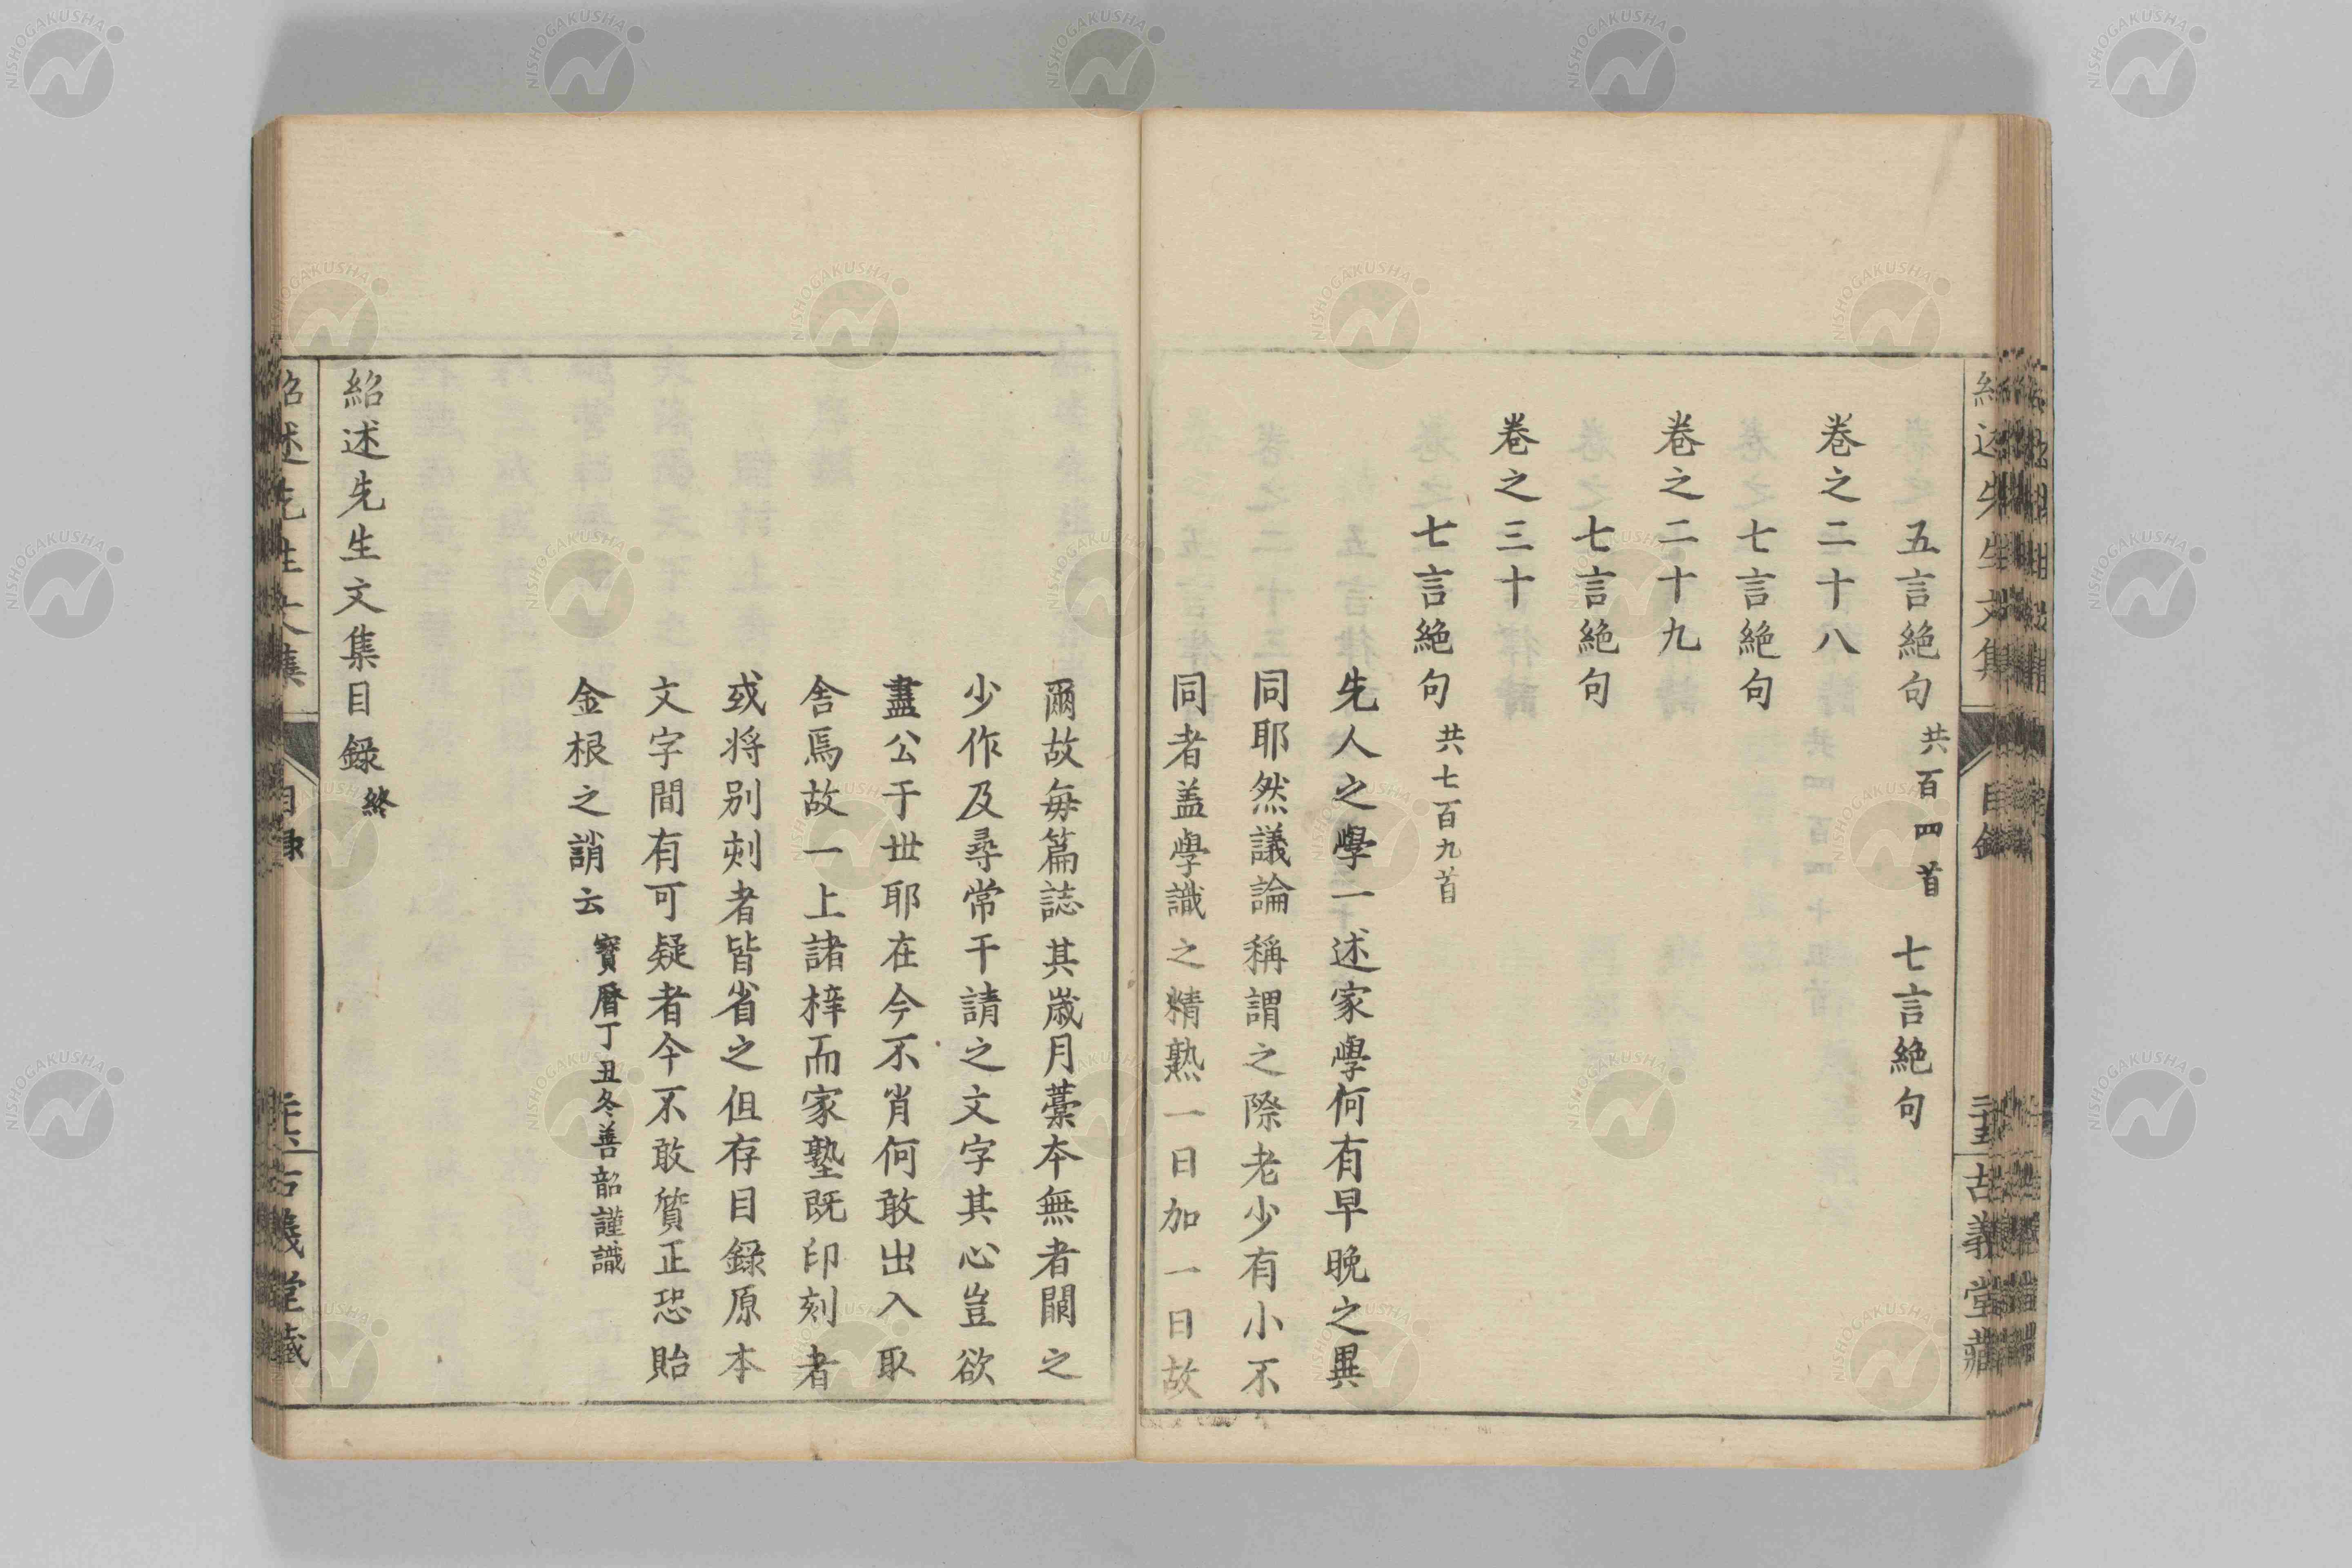 五言絶句 共百四首 七言絶句
卷之二十八
七言絶句
卷之二十九
七言絶句
卷之三十
七言絶句 共七百九首
先人之學一述家學何有早晩之異
同耶然議論稱謂之際老少有小不
同者盖學識之精熟一日加一日故
爾故毎篇誌其歳月藁本無者闕之
少作及尋常干請之文字其心豈欲
盡公于世耶在今不肖何敢出入取
舎焉故一上諸梓而家塾既印刻者
或将別刻者皆省之但存目録原本
文字間有可疑者今不敢質正恐貽
金根之誚云 寳暦丁丑冬善韶謹識
紹述先生文集目録 終
紹述先生文集 目録 古義堂藏
NISHOGAKUSHA